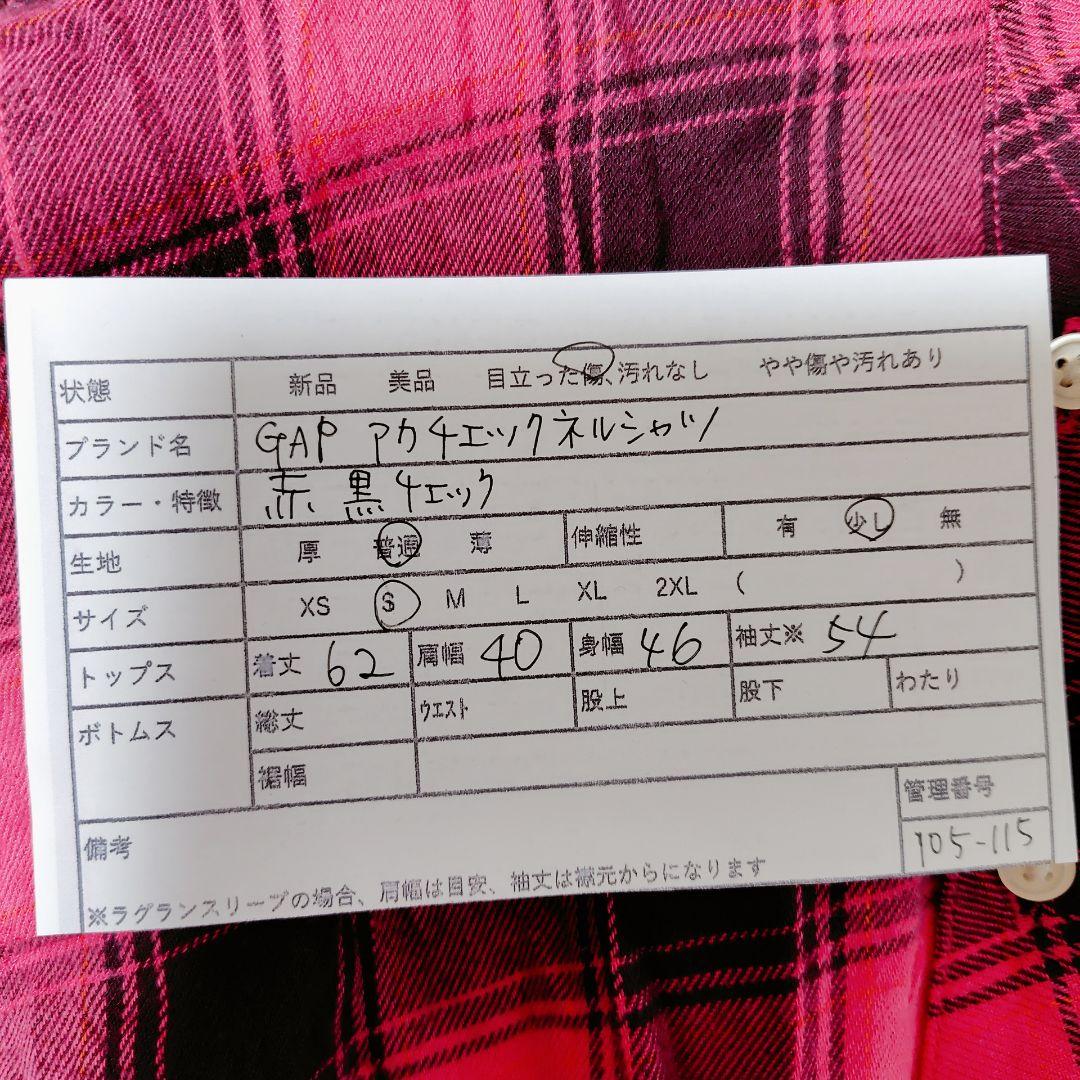 状態 新品 美品 目立った傷、汚れなし やや傷や汚れあり
ブランド名 GAP アカチエックネルシャツ
カラー・特徴 赤 黒チェック
生地 厚 普通 薄 伸縮性 有 少し 無
サイズ XS S M L XL 2XL ( )
トップス 着丈 62 肩幅 40 身幅 46 袖丈※ 54
ボトムス 総丈 ウエスト 股上 股下 わたり
裾幅
備考 管理番号
105-115
※ラグランスリーブの場合、肩幅は目安、袖丈は襟元からになります